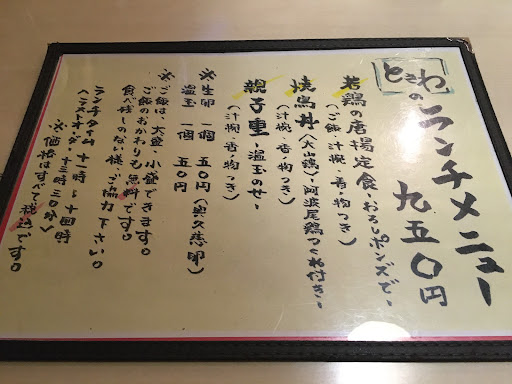 ときわの
ランチメニュー
九五〇円
若鶏の唐揚定食 -おろしポンズで-
(ご飯・汁椀・香・物つき)
焼鳥丼 (大山鶏) -阿波尾鶏つくね付き-
(汁椀・香・物つき)
親子重 -温玉のせ-
(汁椀・香・物つき)
※生卵 一個 五〇円 (奥久慈卵)
温玉 一個 五〇円
※ご飯は、大盛、小盛できます。
ご飯のおかわりも無料です。
食べ残しのない様、ご協力下さい。
ランチタイム 十一時〜十四時
(ラストオーダー 十三時三〇分)
※価格はすべて税込です。